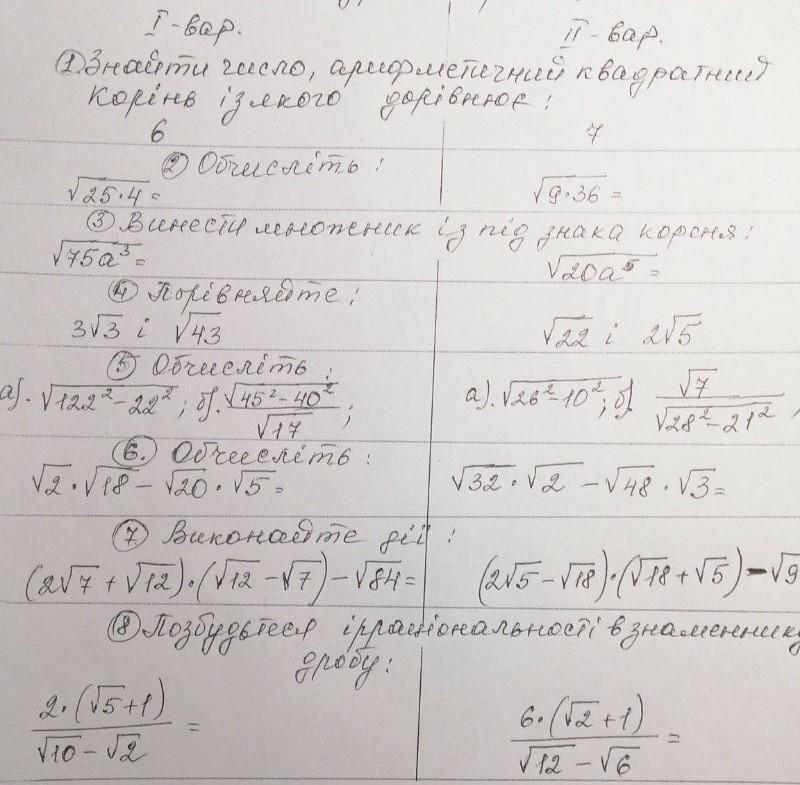 I-вар. II-вар.
① Знайти число, арифметичний квадратний
корінь із якого дорівнює:
6 7
② Обчисліть:
√25·4 = √9·36 =
③ Винести множник із під знака кореня:
√75a³ = √20a⁵ =
④ Порівняйте:
3√3 і √43 √22 і 2√5
⑤ Обчисліть:
а). √122²-22²; б). √45²-40²/√17; а). √26²-10²; б). √7/√28²-21²,
⑥. Обчисліть:
√2·√18 - √20·√5 = √32·√2 - √48·√3 =
⑦ Виконайте дії:
(2√7+√12)·(√12-√7)-√84 = (2√5-√18)·(√18+√5)-√9
⑧ Позбудьтеся ірраціональності в знаменнику
дробу:
2·(√5+1)/√10-√2 = 6·(√2+1)/√12-√6 =